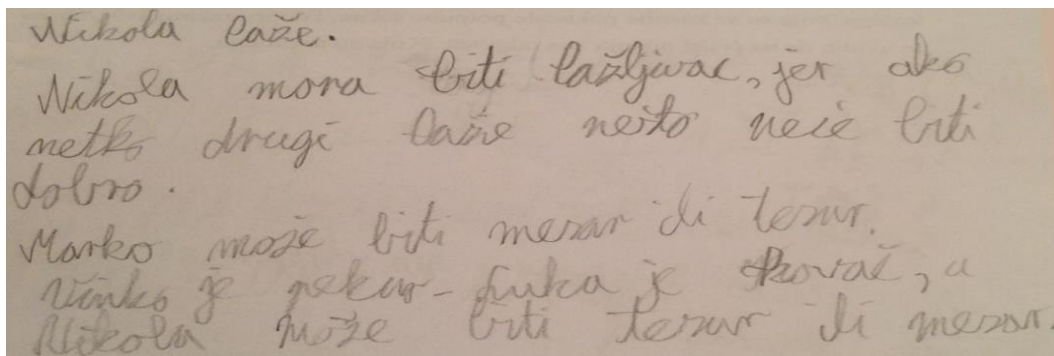 Nikola laže.
Nikola mora biti lažljivac, jer ako
netko drugi laže nešto neće biti
dobro.
Marko može biti mesar ili tesar.
Vinko je pekar. Luka je kovač, a
Nikola može biti tesar ili mesar.